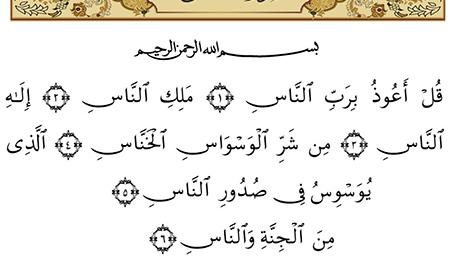 بسم الله الرحمن الرحيم
قُلْ أَعُوذُ بِرَبِّ ٱلنَّاسِ ١ مَلِكِ ٱلنَّاسِ ٢ إِلَٰهِ
ٱلنَّاسِ ٣ مِن شَرِّ ٱلْوَسْوَاسِ ٱلْخَنَّاسِ ٤ ٱلَّذِى
يُوَسْوِسُ فِى صُدُورِ ٱلنَّاسِ ٥
مِنَ ٱلْجِنَّةِ وَٱلنَّاسِ ٦